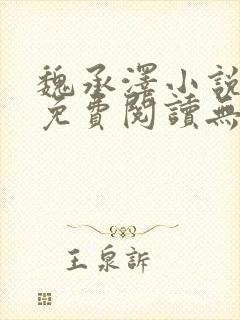 魏承澤小說
免費閱讀無
王泉訴